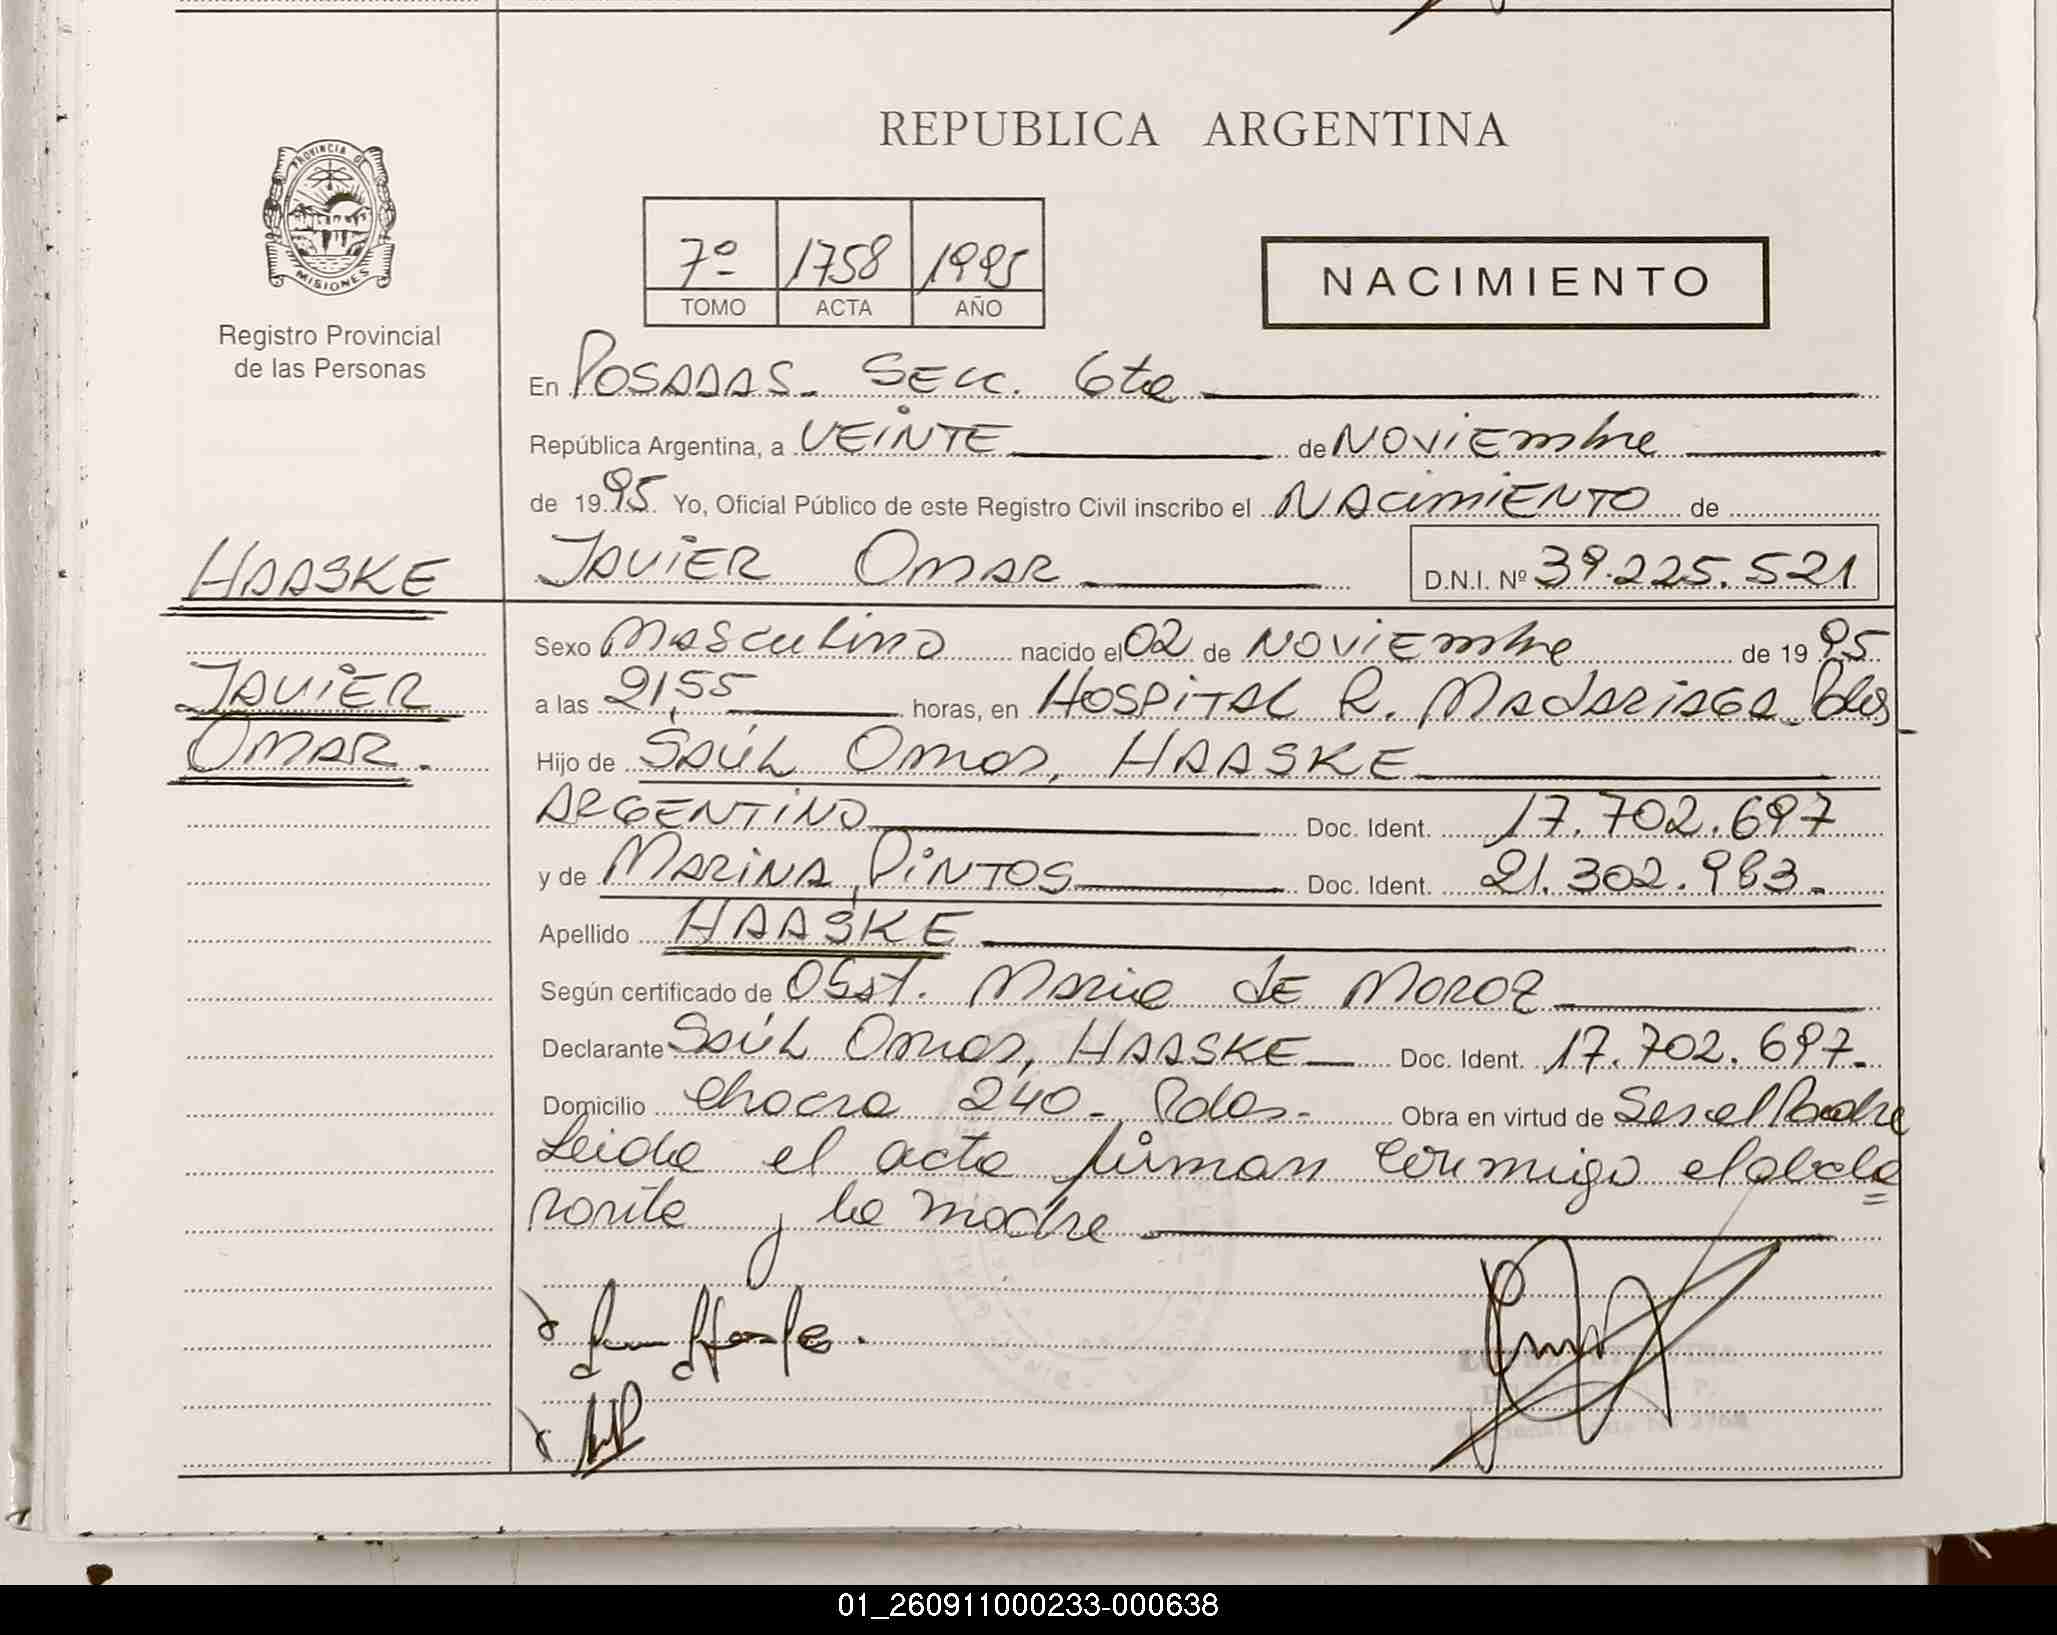 REPUBLICA ARGENTINA
PROVINCIA DE
MISIONES
Registro Provincial
de las Personas
7º 1758 1995
TOMO ACTA AÑO
NACIMIENTO
En POSADAS - SECC. 6ta
República Argentina, a VEINTE de NOVIEmbre
de 1995 Yo, Oficial Público de este Registro Civil inscribo el NACimiENTO de
HAASKE JAVIER OMAR D.N.I. Nº 39.225.521
Sexo MASCulino nacido el 02 de NOVIEmbre de 1995
JAVIER a las 21,55 horas, en HOSPITAL R. MADARIAGA - Pdas -
OMAR. Hijo de SAÚL Omar, HAASKE
ARGENTINO Doc. Ident. 17.702.697
y de MARINA, PINTOS Doc. Ident. 21.302.983.-
Apellido HAASKE
Según certificado de Obst. Maria de MOROZ
Declarante SAÚL Omar, HAASKE Doc. Ident. 17.702.697.-
Domicilio Chacra 240 - Pdas - Obra en virtud de Ser el Padre
Leida el acta firman conmigo el decla=
rante y la madre
01_260911000233-000638